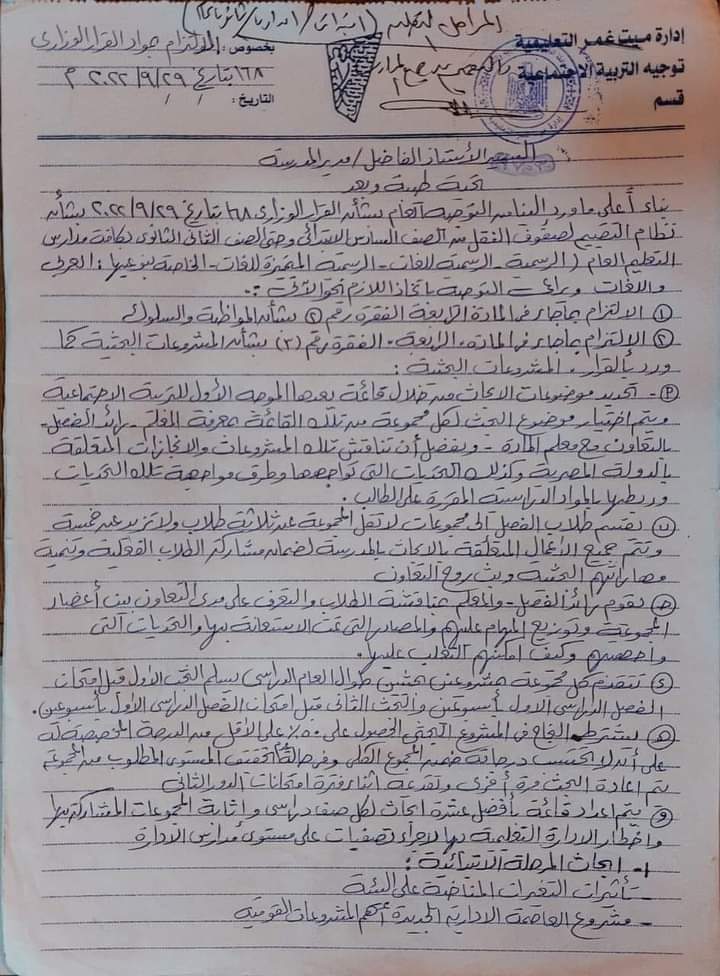 إدارة ميت غمر التعليمية
توجيه التربية الاجتماعية
قسم
المراحل التعليم (ابتدائى / اعدادى / ثانوى عام)
بخصوص: الالتزام بمواد القرار الوزارى
١٦٨ بتاريخ ٢٠٢٢/٩/٢٩ م
التاريخ: / /
السيد الأستاذ الفاضل / مدير المدرسة
تحية طيبة وبعد
بناء على ما ورد الينا من التوجيه العام بشأن القرار الوزارى ١٦٨ بتاريخ ٢٠٢٢/٩/٢٩ بشأن
نظام التقييم لصفوف النقل من الصف السادس الابتدائى وحتى الصف الثانى الثانوى بكافة مدارس
التعليم العام (الرسمية - الرسمية للغات - الرسمية المتميزة للغات - الخاصة بنوعيها: العربى
واللغات ويراعى التوجيه باتخاذ اللازم نحو الآتى :-
① الالتزام بما جاء فى المادة الرابعة الفقرة رقم ② بشأن المواظبة والسلوك
② الالتزام بما جاء فى المادة الرابعة - الفقرة رقم (٣) بشأن المشروعات البحثية كما
ورد بالقرار. المشروعات البحثية :
أ - تحديد موضوعات الابحاث من خلال قائمة يعدها الموجه الأول للتربية الاجتماعية
ويتم اختيار موضوع البحث لكل مجموعة من تلك القائمة بمعرفة المعلم - رائد الفصل -
بالتعاون مع معلم المادة - ويفضل أن تناقش تلك المشروعات والانجازات المتعلقة
بالدولة المصرية وكذلك التحديات التى تواجهها وطرق مواجهة تلك التحديات
وربطها بالمواد الدراسية المقررة على الطالب .
ب يقسم طلاب الفصل الى مجموعات لا تقل المجموعة عن ثلاثة طلاب ولا تزيد عن خمسة
وتتم جميع الأعمال المتعلقة بالابحاث بالمدرسة لضمان مشاركة الطلاب الفعلية وتنمية
مهاراتهم البحثية وبث روح التعاون
ج يقوم رائد الفصل - والمعلم بمناقشة الطلاب والتعرف على مدى التعاون بين أعضاء
المجموعة وتوزيع المهام عليهم والمصادر التى تمت الاستعانة بها والتحديات التى
واجهتهم وكيف امكنهم التغلب عليها.
د تتقدم كل مجموعة بمشروعين بحثيين طوال العام الدراسى يسلم البحث الأول قبل امتحان
الفصل الدراسى الأول بأسبوعين والبحث الثانى قبل امتحان الفصل الدراسى الأول بأسبوعين.
هـ يشترط النجاح فى المشروع البحثى الحصول على ٥٠٪ على الأقل من الدرجة المخصصة له
على أنه لا تحتسب درجاته ضمن المجموع الكلى وفى حالة عدم تحقق المستوى المطلوب من المجموعة
يتم اعادة البحث مرة أخرى وتقدمه أثناء فترة امتحانات الدور الثانى
و يتم اعداد قائمة بأفضل عشرة ابحاث لكل صف دراسى واثابة المجموعات المشاركة بها
واخطار الادارة التعليمية بها لاجراء تصفيات على مستوى مدارس الادارة
١- ابحاث المرحلة الابتدائية :
- تأثيرات التغيرات المناخية على البيئة
- مشروع العاصمة الادارية الجديدة أهم المشروعات القومية